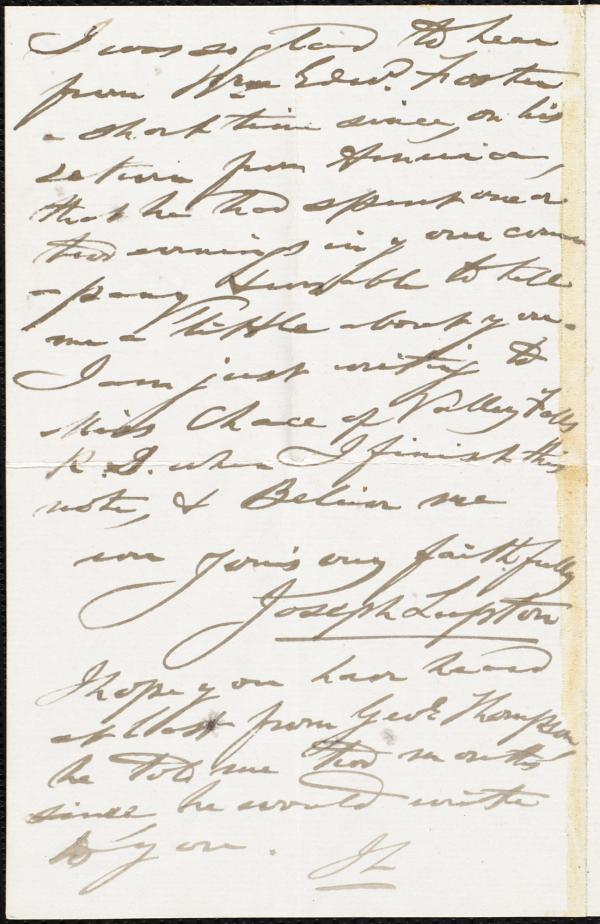 I was so glad to hear
from Wm Edwd. Foster
a short time since, on his
return from America,
that he had spent one or
two evenings in your com
-pany & was able to tell
me a little about you.
I am just writing to
Miss Chace of Valley Falls
R. I. when I finish this
note, & Believe me
ever yours very faithfully
Joseph Lupton
I hope you have heard
at last from Geo. Thompson
he told me two months
since he would write
to you. JL